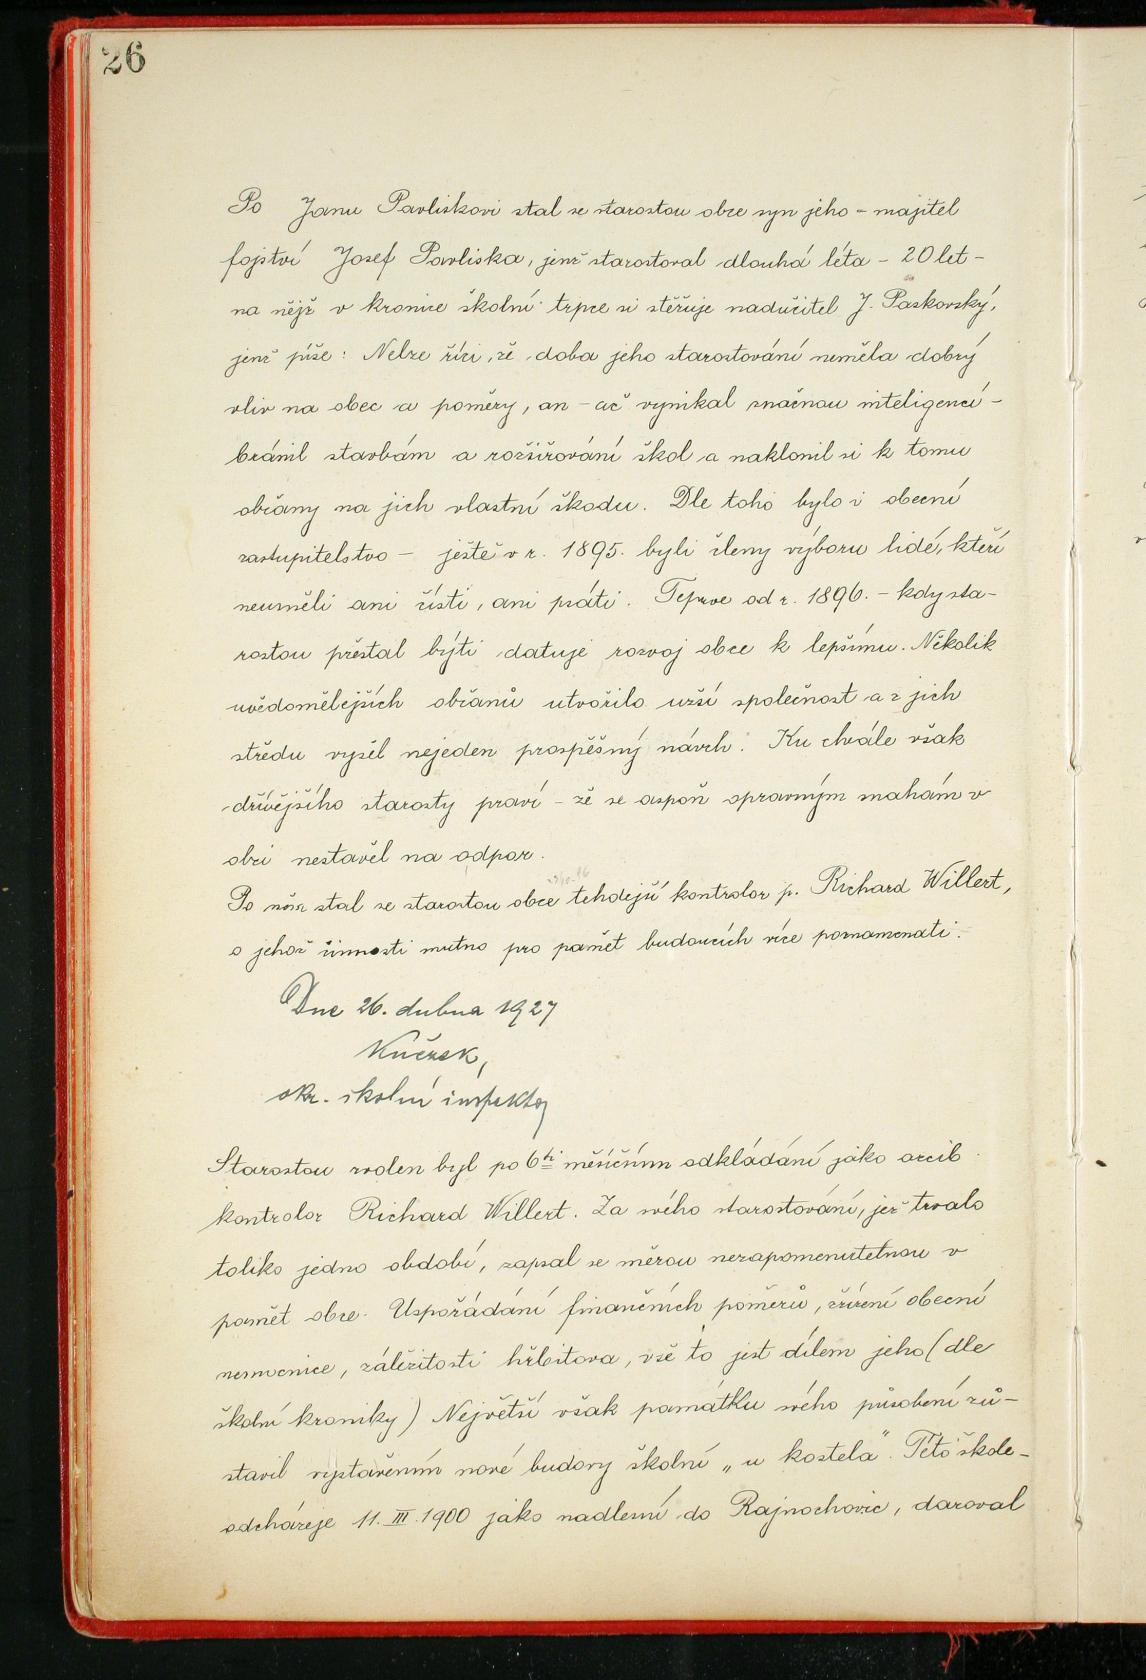 26
Po Janu Pavliskovi stal se starostou obce syn jeho – majitel
fojství Josef Pavliska, jenž starostoval dlouhá léta – 20 let –
na nějž v kronice školní trpce si stěžuje nadučitel J. Paskovský,
jenž píše: Nelze říci, že doba jeho starostování neměla dobrý
vliv na obec a poměry, an – ač vynikal značnou inteligencí –
bránil stavbám a rozšiřování škol a naklonil si k tomu
občany na jich vlastní škodu. Dle toho bylo i obecní
zastupitelstvo – ještě v r. 1895. byli členy výboru lidé, kteří
neuměli ani čísti, ani psáti. Teprve od r. 1896. – kdy sta-
rostou přestal býti datuje rozvoj obce k lepšímu. Několik
uvědomělejších občanů utvořilo užší společnost a z jich
středu vyšel nejeden prospěšný návrh. Ku chvále však
dřívějšího starosty praví – že se aspoň opravným snahám v
obci nestavěl na odpor.
Po něm stal se starostou obce tehdejší kontrolor p. Richard Willert,
o jehož činnosti nutno pro paměť budoucích více poznamenati.
Dne 26. dubna 1927
okr. školní inspektor
Starostou zvolen byl po 6ti měsíčním odkládání jako arcib.
kontrolor Richard Willert. Za svého starostování, jež trvalo
toliko jedno období, zapsal se měrou nezapomenutelnou v
pamět obce. Uspořádání finančních poměrů, zřízení obecní
nemocnice, záležitosti hřbitova, vše to jest dílem jeho (dle
školní kroniky) Největší však památku svého působení zů-
stavil vystavěním nové budovy školní „u kostela“. Této škole –
odcházeje 11. III. 1900 jako nadlesní do Rajnochovic, daroval